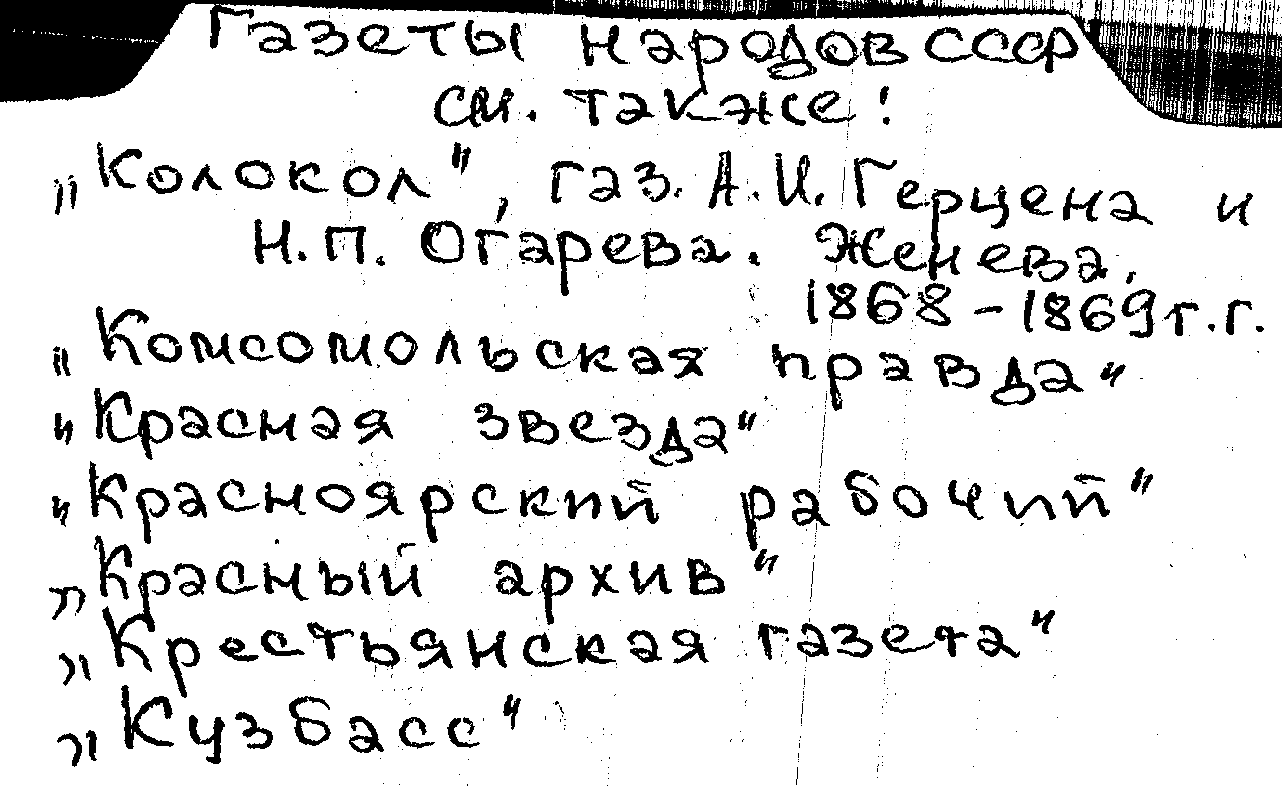 Газеты народов СССР
см. также:
„Колокол", газ. А.И. Герцена и
Н.П. Огарева. Женева,
1868-1869г.г.
"Комсомольская правда"
"Красная звезда"
"Красноярский рабочий"
„Красный архив"
„Крестьянская газета"
„Кузбасс"